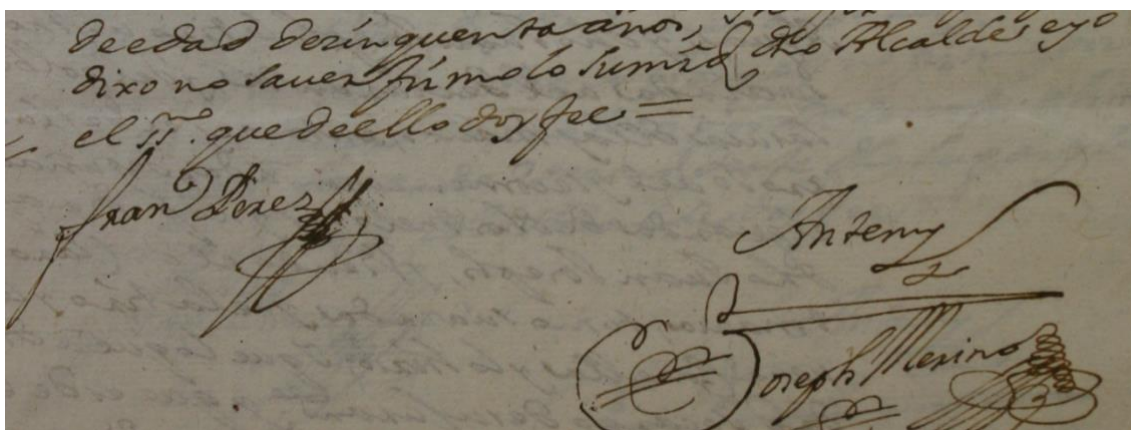 de edad de zinquenta anos,
dixo no saver firmolo su mrd dho Alcalde e yo
el ss.no que de ello doy fee =
Fran.co Perez
Ante my
Joseph Merino